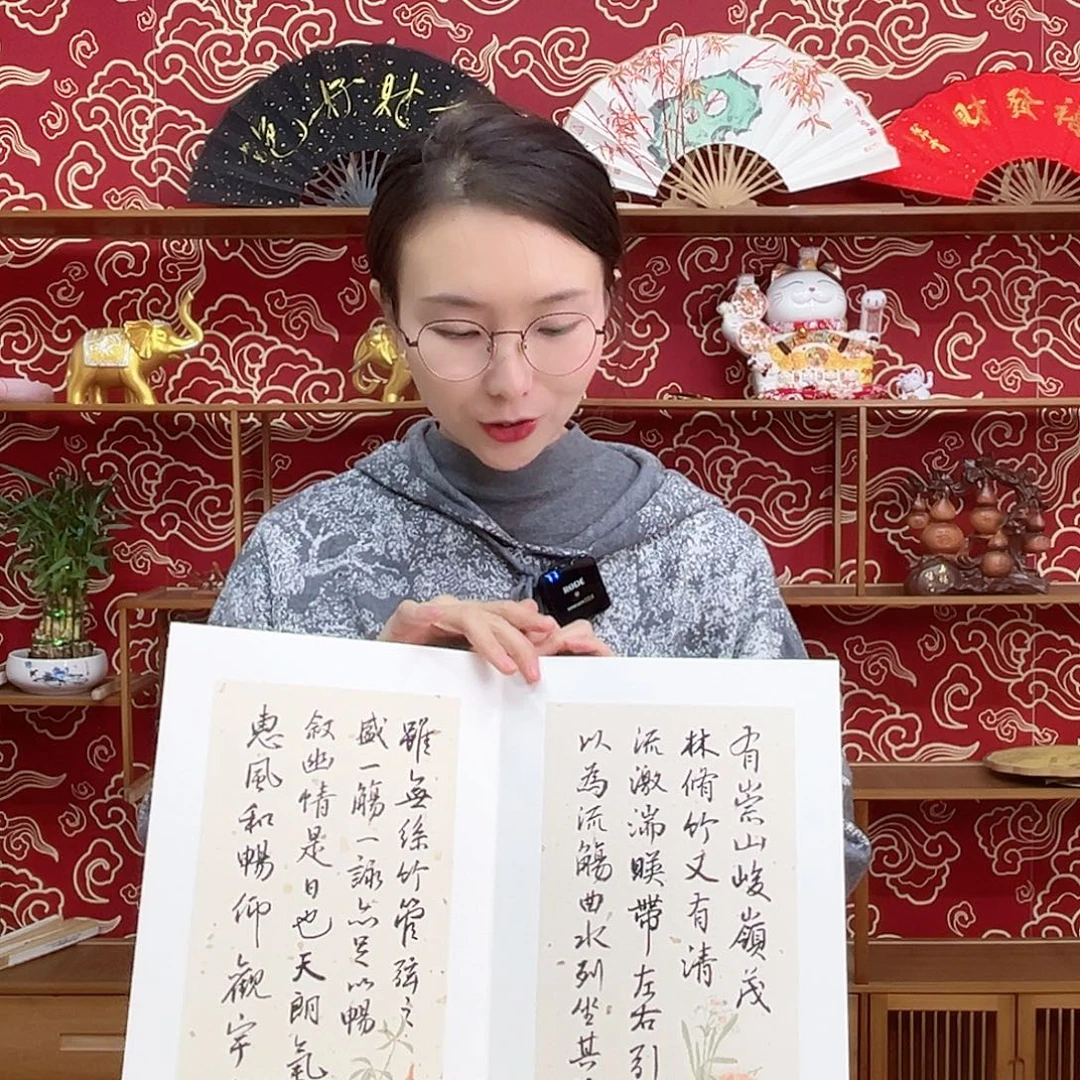 福發財
有崇山峻嶺茂
林脩竹又有清
流激湍暎帶左右引
以為流觴曲水列坐其
雖無絲竹管弦之
盛一觴一詠亦足以暢
敘幽情是日也天朗氣
惠風和暢仰觀宇
RØDE